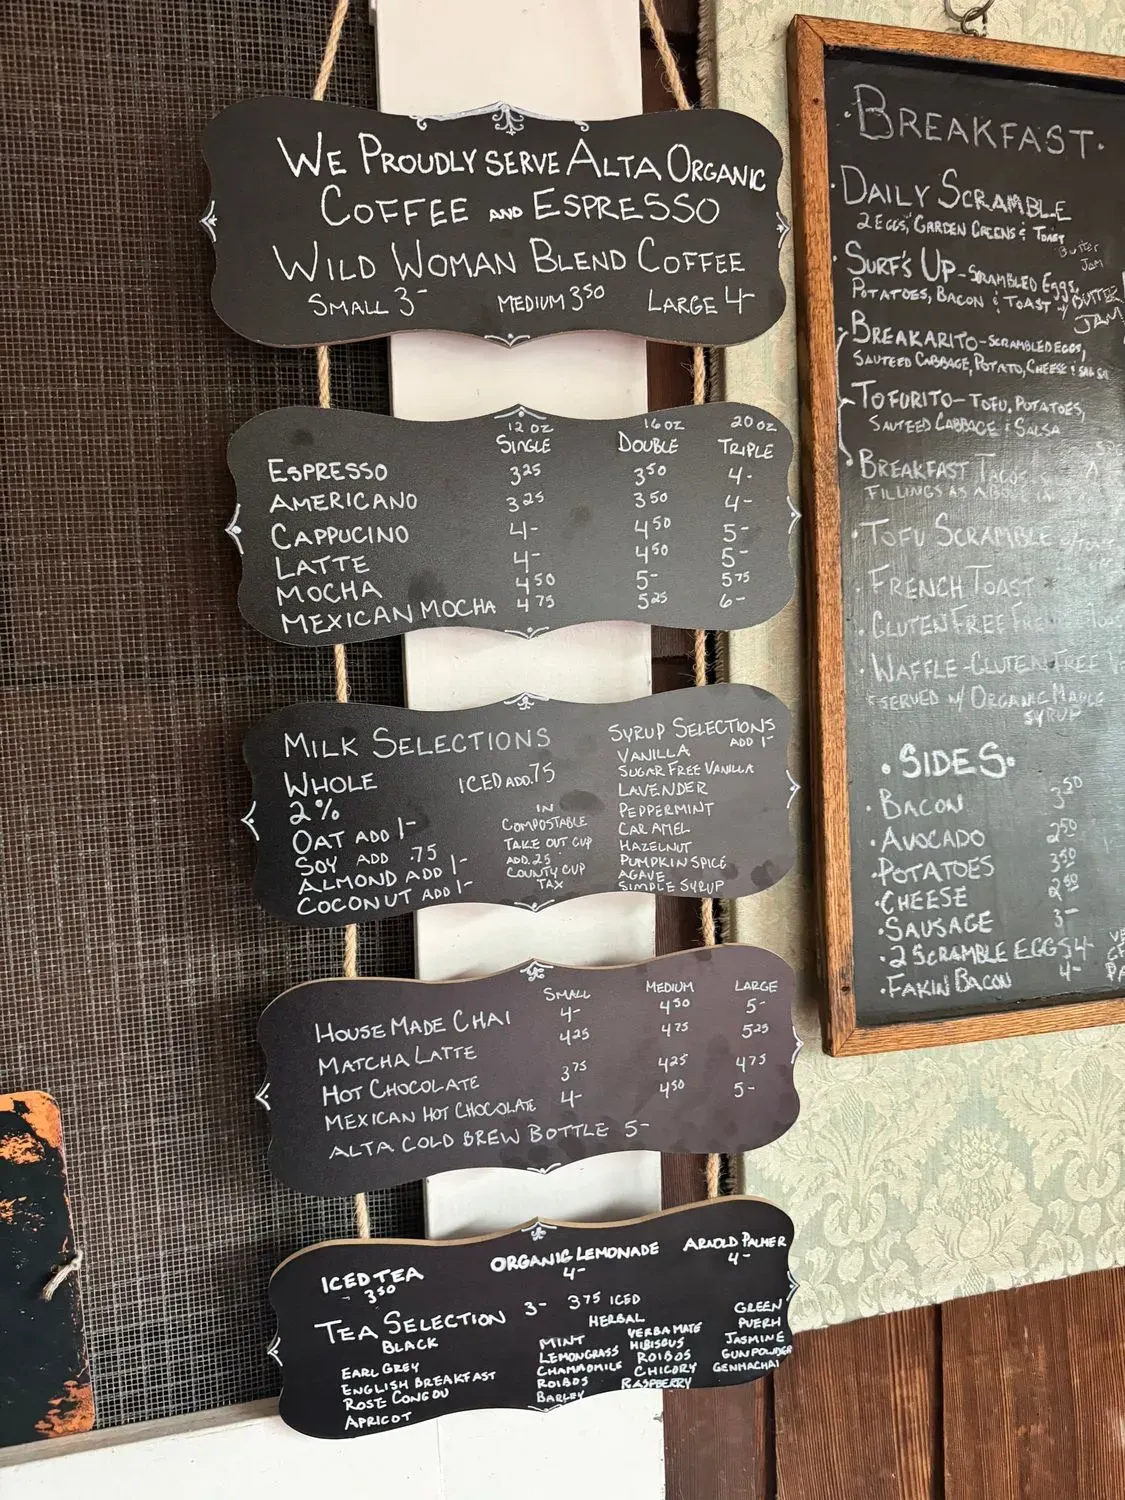 WE PROUDLY SERVE ALTA ORGANIC
COFFEE AND ESPRESSO
WILD WOMAN BLEND COFFEE
SMALL 3- MEDIUM 350 LARGE 4-
12 OZ 16 OZ 20 OZ
SINGLE DOUBLE TRIPLE
ESPRESSO 325 350 4-
AMERICANO 325 350 4-
CAPPUCINO 4- 450 5-
LATTE 4- 450 5-
MOCHA 450 5- 575
MEXICAN MOCHA 475 525 6-
MILK SELECTIONS
WHOLE ICED ADD .75
2%
OAT ADD 1-
SOY ADD .75
ALMOND ADD 1-
COCONUT ADD 1-
IN
COMPOSTABLE
TAKE OUT CUP
ADD .25
COUNTY CUP
TAX
SYRUP SELECTIONS
ADD 1-
VANILLA
SUGAR FREE VANILLA
LAVENDER
PEPPERMINT
CARAMEL
HAZELNUT
PUMPKIN SPICE
AGAVE
SIMPLE SYRUP
SMALL MEDIUM LARGE
HOUSE MADE CHAI 4- 450 5-
MATCHA LATTE 425 475 525
HOT CHOCOLATE 375 425 475
MEXICAN HOT CHOCOLATE 4- 450 5-
ALTA COLD BREW BOTTLE 5-
ICED TEA ORGANIC LEMONADE ARNOLD PALMER
350 4- 4-
TEA SELECTION 3- 375 ICED
BLACK
EARL GREY
ENGLISH BREAKFAST
ROSE CONGOU
APRICOT
HERBAL
MINT
LEMONGRASS
CHAMMOMILE
ROIBOS
BARLEY
YERBA MATE
HIBISCUS
ROIBOS
CHICORY
RASPBERRY
GREEN
PUERH
JASMINE
GUNPOWDER
GENMACHAI
·BREAKFAST·
·DAILY SCRAMBLE
2 EGGS, GARDEN GREENS & TOAST
Butter
Jam
·SURF'S UP-SCRAMBLED EGGS,
POTATOES, BACON & TOAST W/ BUTTER
JAM
·BREAKARITO-SCRAMBLED EGGS,
SAUTEED CABBAGE, POTATO, CHEESE & SALSA
·TOFURITO-TOFU, POTATOES,
SAUTEED CABBAGE & SALSA
·BREAKFAST TACOS
FILLINGS AS ABOVE
·TOFU SCRAMBLE W/TOAST
·FRENCH TOAST
·GLUTEN FREE FRENCH TOAST
·WAFFLE-GLUTEN FREE
*SERVED W/ ORGANIC MAPLE
SYRUP
·SIDES·
·BACON 350
·AVOCADO 250
·POTATOES 350
·CHEESE 250
·SAUSAGE 3-
·2 SCRAMBLE EGGS 4-
·FAKIN BACON 4-